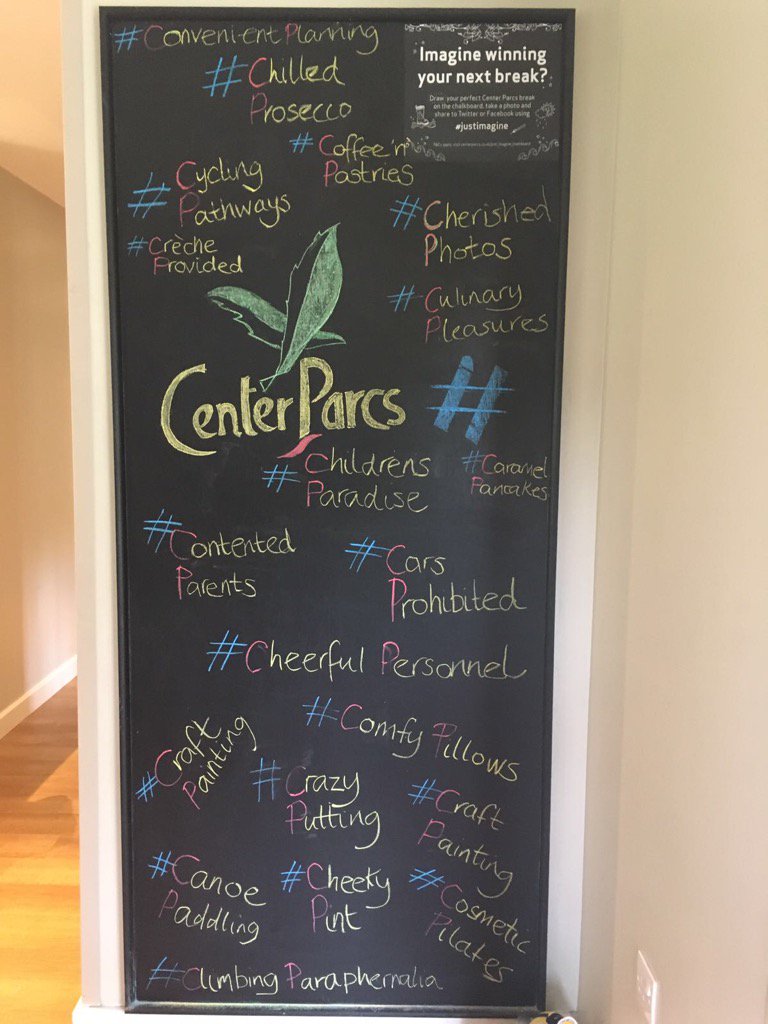 #Convenient Planning
Imagine winning
your next break?
Draw your perfect Center Parcs break
on the chalkboard, take a photo and
share to Twitter or Facebook using
#justimagine
#Chilled
Prosecco
#Coffee 'n'
Pastries
#Cycling
Pathways
#Cherished
Photos
#Crèche
Provided
#Culinary
Pleasures
Center Parcs
#
#Childrens
Paradise
#Caramel
Pancakes
#Contented
Parents
#Cars
Prohibited
#Cheerful Personnel
#Comfy Pillows
#Craft
Painting
#Crazy
Putting
#Craft
Painting
#Canoe
Paddling
#Cheeky
Pint
#Cosmetic
Pilates
#Climbing Paraphernalia